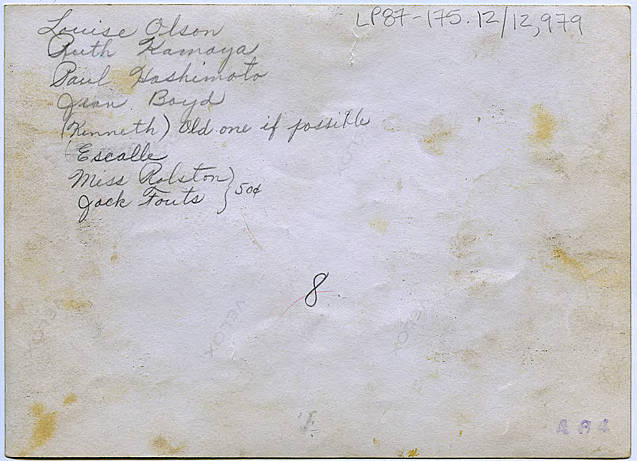 LP87-175.12/12,979
Louise Olson
Ruth Kamaya
Paul Hashimoto
Jean Boyd
(Kenneth) Old one if possible
(Escalle
Miss Ralston)
Jack Fouts } 50¢
8
VELOX
VELOX
VELOX